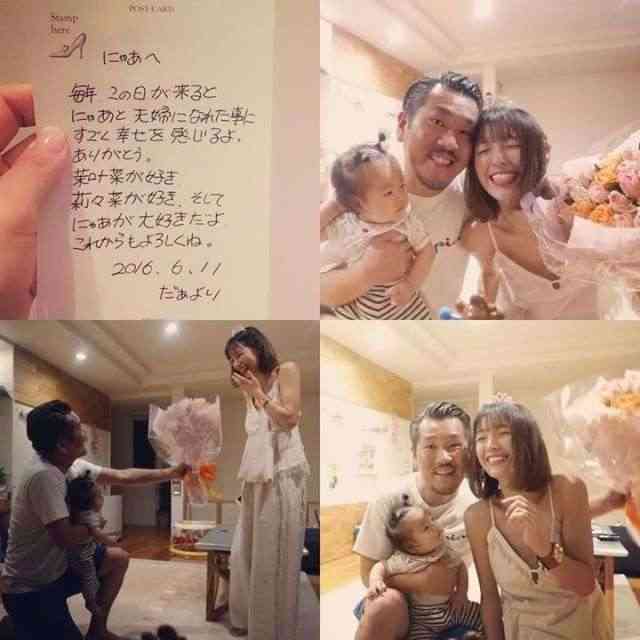 POST CARD
Stamp
here
にゃあへ
毎年 この日が来ると
にゃあと夫婦になれた事に
すごく幸せを感じるよ。
ありがとう。
菜叶菜が好き
莉々菜が好き、そして
にゃあが大好きだよ
これからもよろしくね。
2016.6.11
だぁより